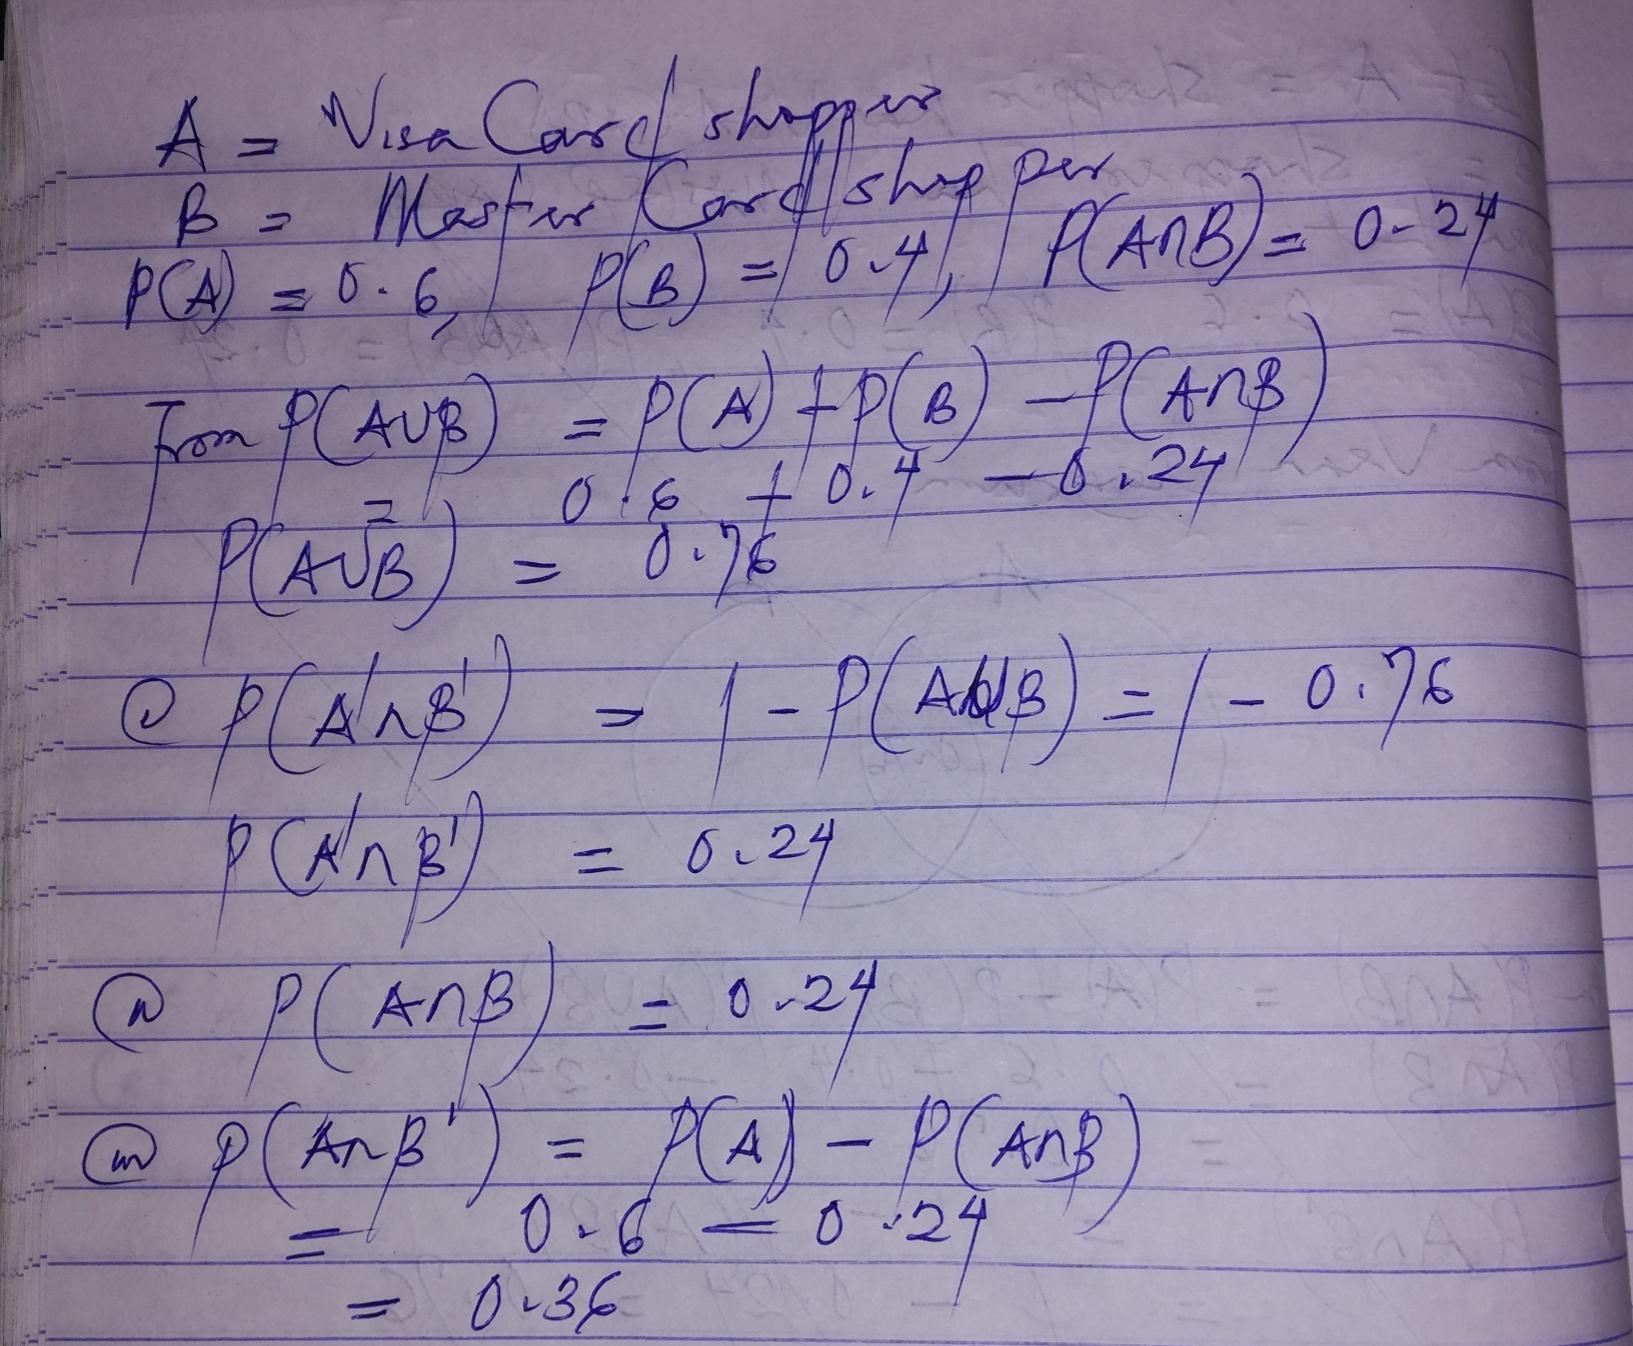 A = Visa Card shopper
B = Master Card shopper
P(A) = 0.6, P(B) = 0.4, P(A∩B) = 0.24
From P(A∪B) = P(A) + P(B) - P(A∩B)
= 0.6 + 0.4 - 0.24
P(A∪B) = 0.76
(i) P(A'∩B') = 1 - P(A∪B) = 1 - 0.76
P(A'∩B') = 0.24
(ii) P(A∩B) = 0.24
(iii) P(A∩B') = P(A) - P(A∩B)
= 0.6 - 0.24
= 0.36